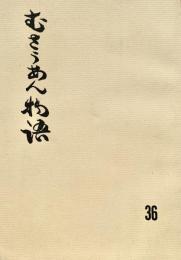 むさうあん物語
36